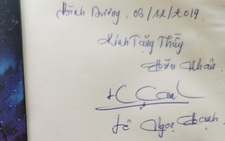 Bình Dương, 03/12/2019.
Kính Tặng Thầy
Hữu Nhân.
Lê Ngọc Hạnh